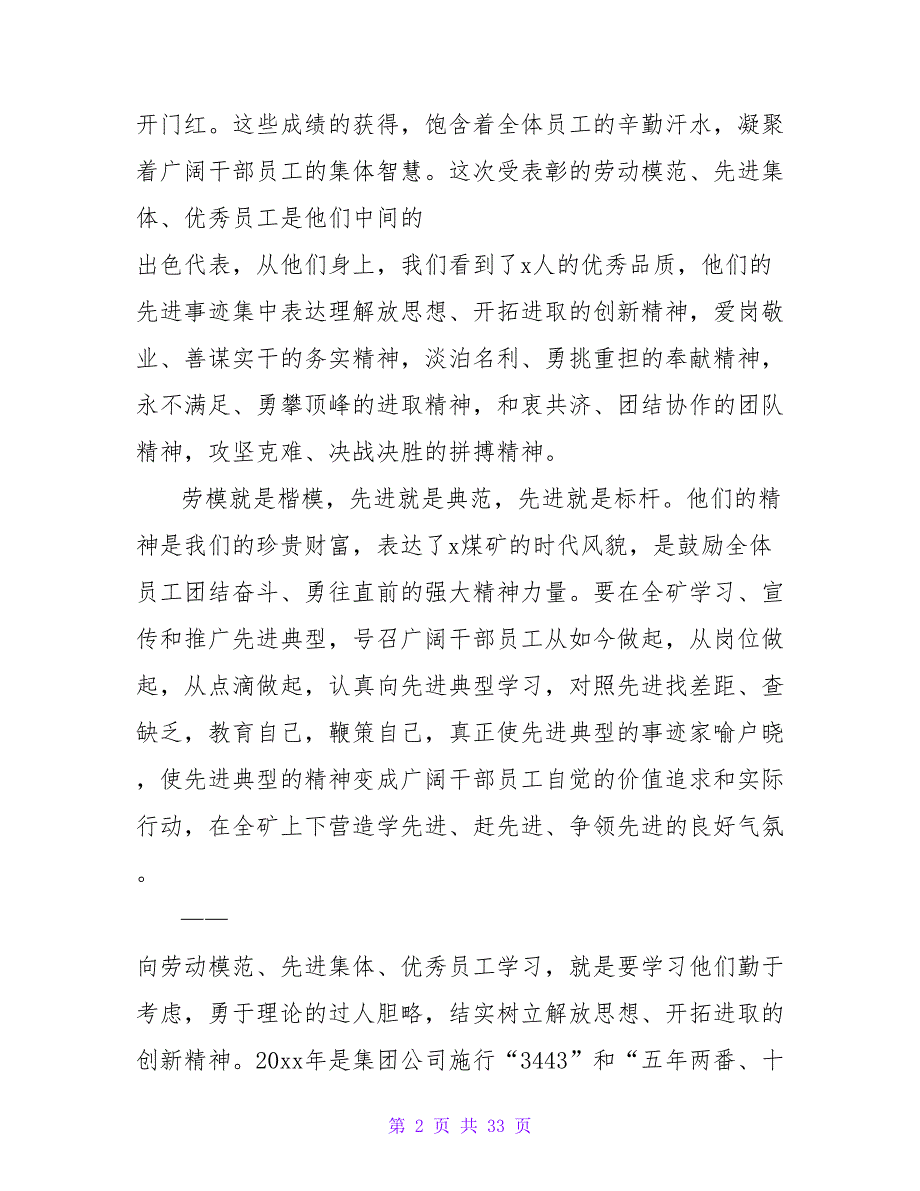 开门红。这些成绩的获得，饱含着全体员工的辛勤汗水，凝聚
着广阔干部员工的集体智慧。这次受表彰的劳动模范、先进集
体、优秀员工是他们中间的
出色代表，从他们身上，我们看到了x人的优秀品质，他们的
先进事迹集中表达理解放思想、开拓进取的创新精神，爱岗敬
业、善谋实干的务实精神，淡泊名利、勇挑重担的奉献精神，
永不满足、勇攀顶峰的进取精神，和衷共济、团结协作的团队
精神，攻坚克难、决战决胜的拼搏精神。
劳模就是楷模，先进就是典范，先进就是标杆。他们的精
神是我们的珍贵财富，表达了x煤矿的时代风貌，是鼓励全体
员工团结奋斗、勇往直前的强大精神力量。要在全矿学习、宣
传和推广先进典型，号召广阔干部员工从如今做起，从岗位做
起，从点滴做起，认真向先进典型学习，对照先进找差距、查
缺乏，教育自己，鞭策自己，真正使先进典型的事迹家喻户晓
，使先进典型的精神变成广阔干部员工自觉的价值追求和实际
行动，在全矿上下营造学先进、赶先进、争领先进的良好气氛
。
——
向劳动模范、先进集体、优秀员工学习，就是要学习他们勤于
考虑，勇于理论的过人胆略，结实树立解放思想、开拓进取的
创新精神。20xx年是集团公司施行“3443”和“五年两番、十
第 2 页 共 33 页